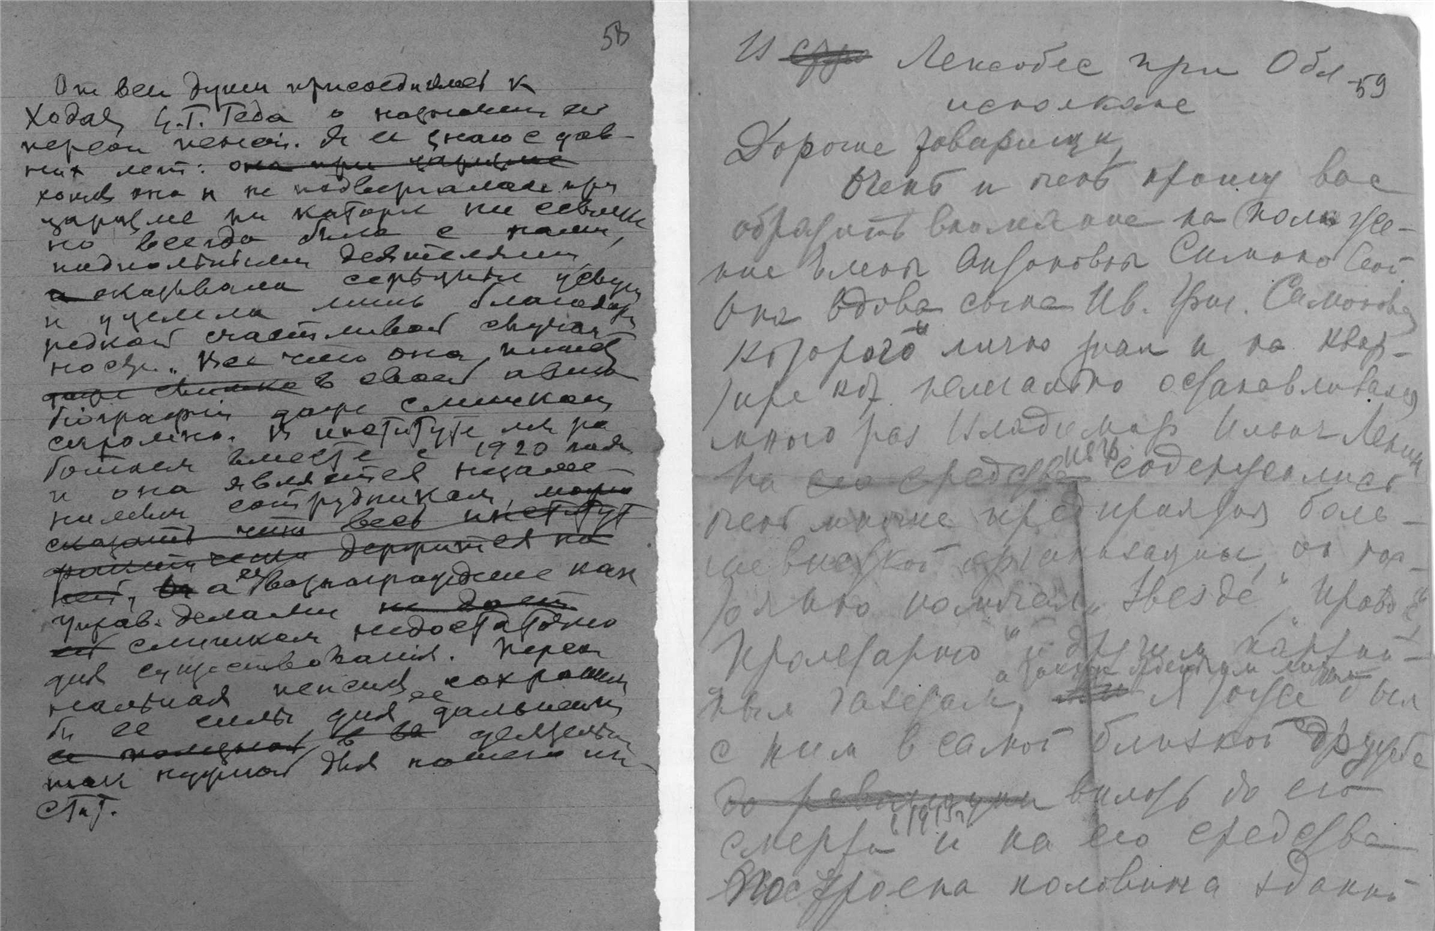 58
От всей души присоединяюсь к
Ходат. Ц.Т. Геда о назначении ей
персон пенсии. Я ее знаю с дав-
них лет: она при царизме
хотя она и не подвергалась при
царизме ни каторге ни ссылке
но всегда была с нами,
подпольными деятелями,
и оказывала серьезные услуги
и уцелела лишь благодаря
редкой счастливой случай
ности. Все что она пишет
даже слишко в своей авто
биографии даже слишком
скромно. В институте мы ра
ботаем вместе с 1920 года
и она является незаме
нимым сотрудником, можно
сказать что весь институт
фактически держится на
ней, а ее вознаграждение как
управ. делами не дает
ей слишком недостаточно
для существования. Персо
нальная пенсия сохранила
бы ее силы для ее дальнейшей
и полезной, в деятельн
так нужной для нашего ин-
стит.
59
Из Ленсобес при Обл
исполкоме
Дорогие товарищи,
Очень и очень прошу вас
обратить внимание на положе-
ние Елены Антоновны Симоновой
Она вдова сына Ив. Симонова,
которого я лично знал и на квар-
тире кот нелегально останавливался
много раз Владимир Ильич Ленин
На его средства содержались
очень многие предприятия боль-
шевистской организации, он
помогал „Звезде“, Правде,
Пролетарию и другим партий-
ным газетам, Я тоже был
с ним в самой близкой дружбе
до революции вплоть до его
смерти в 1915 г и на его средства
построена половина зданий